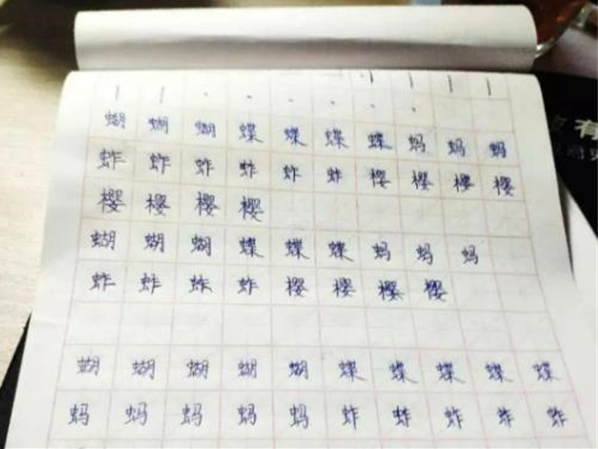 蝴蝴蝴蝶蝶蝶蝶蚂蚂蚂
蚱蚱蚱蚱蚱蚱樱樱樱樱
樱樱樱樱
蝴蝴蝴蝶蝶蝶蚂蚂蚂
蚱蚱蚱蚱樱樱樱樱
蝴蝴蝴蝴蝴蝶蝶蝶蝶蝶
蚂蚂蚂蚂蚂蚱蚱蚱蚱蚱
有